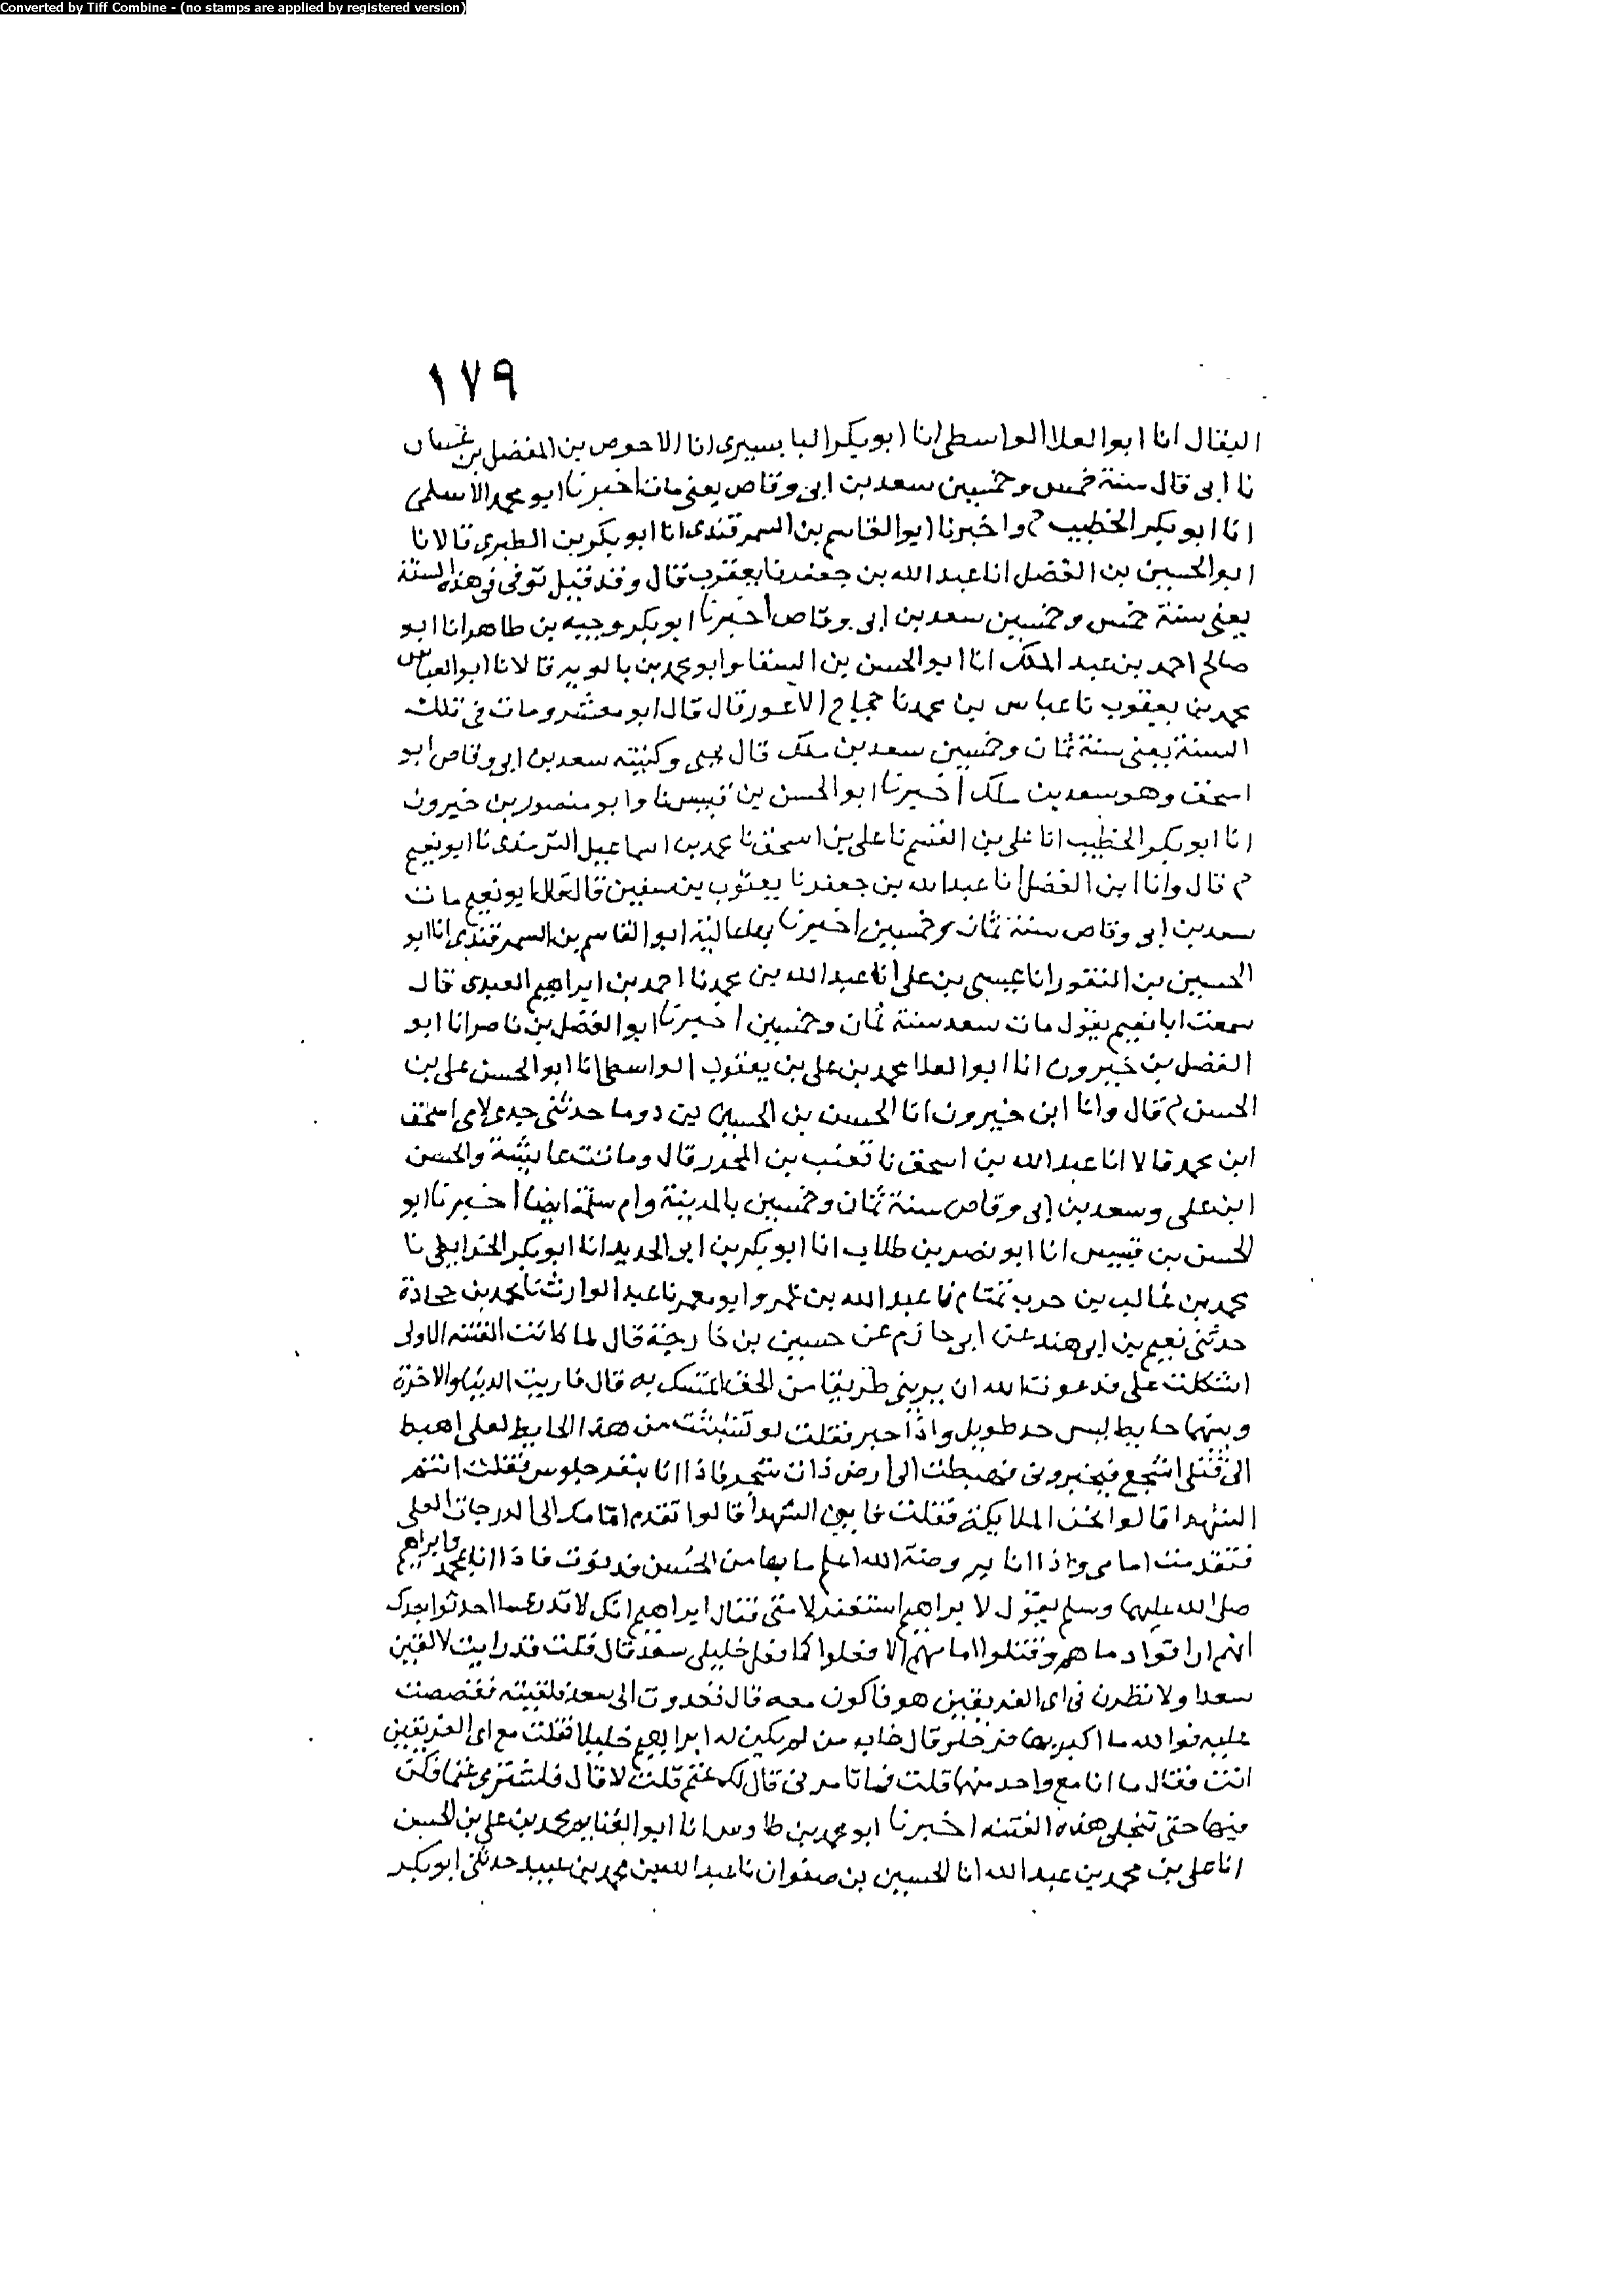 Converted by Tiff Combine - (no stamps are applied by registered version)
١٧٩
البقال انا ابو العلا الواسطى انا ابو بكر البابسيرى انا الاحوص بن المفضل بن غسان
نا ابى قال سنة خمس وخمسين سعد بن ابى وقاص يعنى مات اخبرنا ابو محمد الاسلمى
انا ابو بكر الخطيب ح واخبرنا ابو القاسم بن السمرقندى انا ابو بكر بن الطبرى قالا نا
ابو الحسين بن الفضل انا عبد الله بن جعفر نا يعقوب قال وقد قيل توفى فى هذه السنة
يعنى سنة خمس وخمسين سعد بن ابى وقاص اخبرنا ابو بكر وجيه بن طاهر انا ابو
صالح احمد بن عبد الملك انا ابو الحسن بن السقا وابو محمد بن بالويه قالا نا ابو العباس
محمد بن يعقوب نا عباس بن محمد نا حجاج الاعور قال قال ابو معشر ومات فى تلك
السنة يعنى سنة ثمان وخمسين سعد بن ملك قال يحيى وكنيته سعد بن ابى وقاص ابو
اسحق وهو سعد بن ملك اخبرنا ابو الحسن بن قبيس نا وابو منصور بن خيرون
انا ابو بكر الخطيب انا على بن القسم نا على بن اسحق نا محمد بن اسماعيل الترمذى نا ابو نعيم
ح قال وانا ابن الفضل انا عبد الله بن جعفر نا يعقوب بن سفين قال قال ابو نعيم مات
سعد بن ابى وقاص سنة ثمان وخمسين اخبرنا بها عالية ابو القاسم بن السمرقندى انا ابو
الحسين بن النقور انا عيسى بن على انا عبد الله بن محمد نا احمد بن ابراهيم العبدى قال
سمعت ابا نعيم يقول مات سعد سنة ثمان وخمسين اخبرنا ابو الفضل بن ناصر انا ابو
الفضل بن خيرون انا ابو العلا محمد بن على بن يعقوب الواسطى انا ابو الحسن على بن
الحسن ح قال وانا ابن خيرون انا الحسن بن الحسين بن دوما حدثنى جدى لامى اسحق
ابن محمد قالا انا عبد الله بن اسحق نا قعنب بن المحرر قال وماتت عايشة والحسن
ابن على وسعد بن ابى وقاص سنة ثمان وخمسين بالمدينة وام سلمة ايضا اخبرنا ابو
الحسن بن قبيس انا ابو نصر بن طلاب انا ابو بكر بن ابى الحديد انا ابو بكر الخرايطى نا
محمد بن غالب بن حرب تمتام نا عبد الله بن عمرو ابو معمر نا عبد الوارث نا محمد بن جحادة
حدثنى نعيم بن ابى هند عن ابى حازم عن حسين بن خارجة قال لما كانت الفتنه الاولى
اشكلت على فدعوت الله ان يرينى طريقا من الحق اتمسك به قال فاريت الدنيا والاخرة
وبينهما حايط ليس جد طويل واذا حير فقلت لو تشبثت من هذا الحايط لعلى اهبط
الى قتلى اشجع فيخبرونى فهبطت الى ارض ذات شجر فاذا انا بنفر جلوس فقلت انتم
الشهدا قالوا نحن الملايكة فقلت فاين الشهدا قالوا تقدم امامك الى الدرجات العلى
فتقدمت امامى واذا انا بروضة الله اعلم ما بها من الحسن فدنوت فاذا انا بمحمد وابراهيم
صلى الله عليهما وسلم يقول لابراهيم استغفر لامتى فقال ابراهيم انك لا تدرى ما احدثوا بعدك
انهم اراقوا دماهم وقتلوا امامهم الا فعلوا كما فعل خليلى سعد قال قلت قد رايت لالقين
سعدا ولانظرن فى اى الفريقين هو فاكون معه قال فغدوت الى سعد فلقيته فقصصت
عليه فوالله ما اكبر بها فرحا وقال خاب من لم يكن له ابراهيم خليلا فقلت مع اى الفريقين
انت فقال ما انا مع واحد منهما قلت فما تامرنى قال لك غنم قلت لا قال فلتشترى غنما فكن
فيها حتى تنجلى هذه الفتنه اخبرنا ابو محمد بن طاوس انا ابو الغنايم محمد بن على بن الحسن
انا على بن محمد بن عبد الله انا الحسين بن صفوان نا عبد الله بن محمد بن عبيد حدثنى ابو بكر